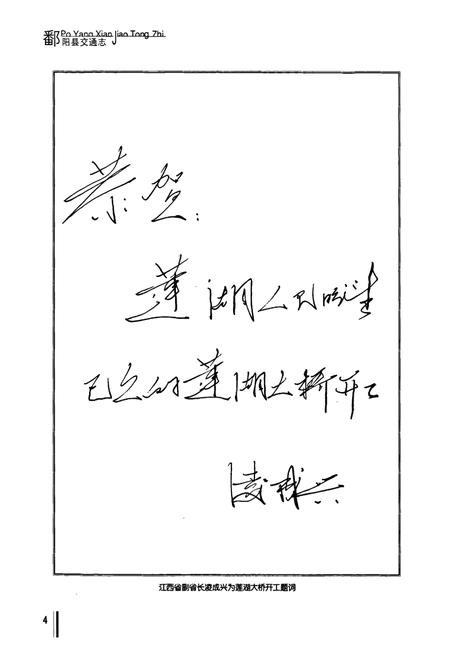 鄱阳县交通志
Po Yang Xian Jiao Tong Zhi
恭贺:
莲湖人民盼望
已久的莲湖大桥开工
凌成兴
江西省副省长凌成兴为莲湖大桥开工题词
4